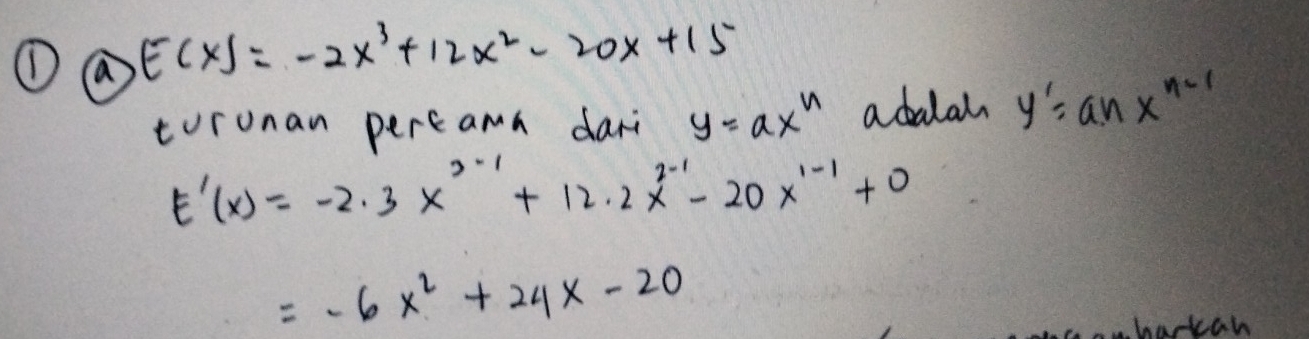 ① ⓐ E(x) = -2x³ + 12x² - 20x + 15
turunan pertama dari y = axⁿ adalah y' = anxⁿ⁻¹
E'(x) = -2.3 x³⁻¹ + 12.2 x²⁻¹ - 20 x¹⁻¹ + 0
= -6x² + 24x - 20